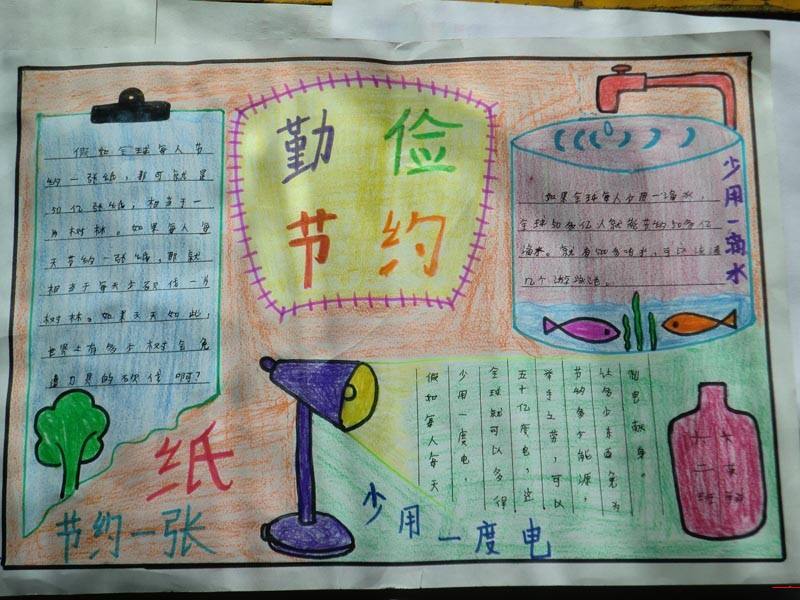 勤俭
节约
假如全球每人节
约一张纸，那可就是
50亿张纸，相当于一
片树林。如果每人每
天节约一张纸，那就
相当于每天少砍伐一片
树林。如果天天如此，
世界上有多少树会免
遭刀具的砍伐啊？
节约一张
纸
如果全球每人少用一滴水，
全球50多亿人就能节约50多亿
滴水。
几个游泳池。
少用一滴水
假如每人每天
少用一度电，
全球就可以多得
五十亿度电，这
举手之劳，可以
节约多少能源，
让多少东西免为
制电献身。
少用一度电
六二班